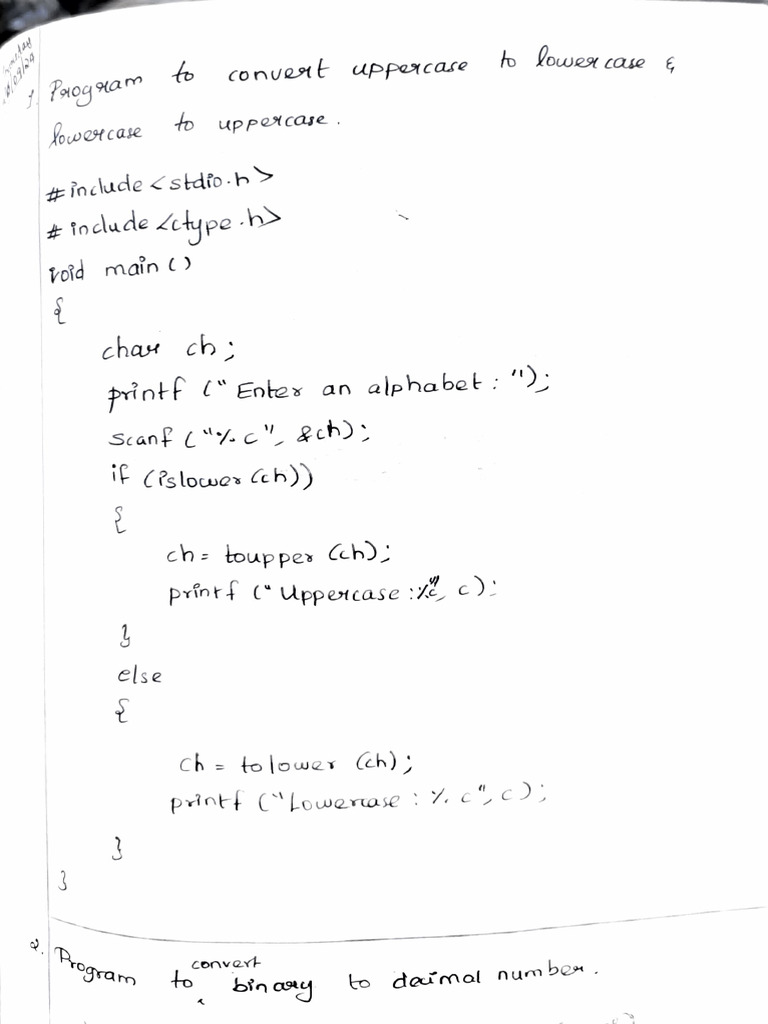 1. Program to convert uppercase to lowercase &
lowercase to uppercase.
#include <stdio.h>
#include <ctype.h>
void main()
{
char ch;
printf ("Enter an alphabet : ");
scanf ("%c", &ch);
if (islower (ch))
{
ch = toupper (ch);
printf ("Uppercase :%c", c);
}
else
{
ch = tolower (ch);
printf ("Lowercase : %c", c);
}
}
2. Program to convert binary to decimal number.